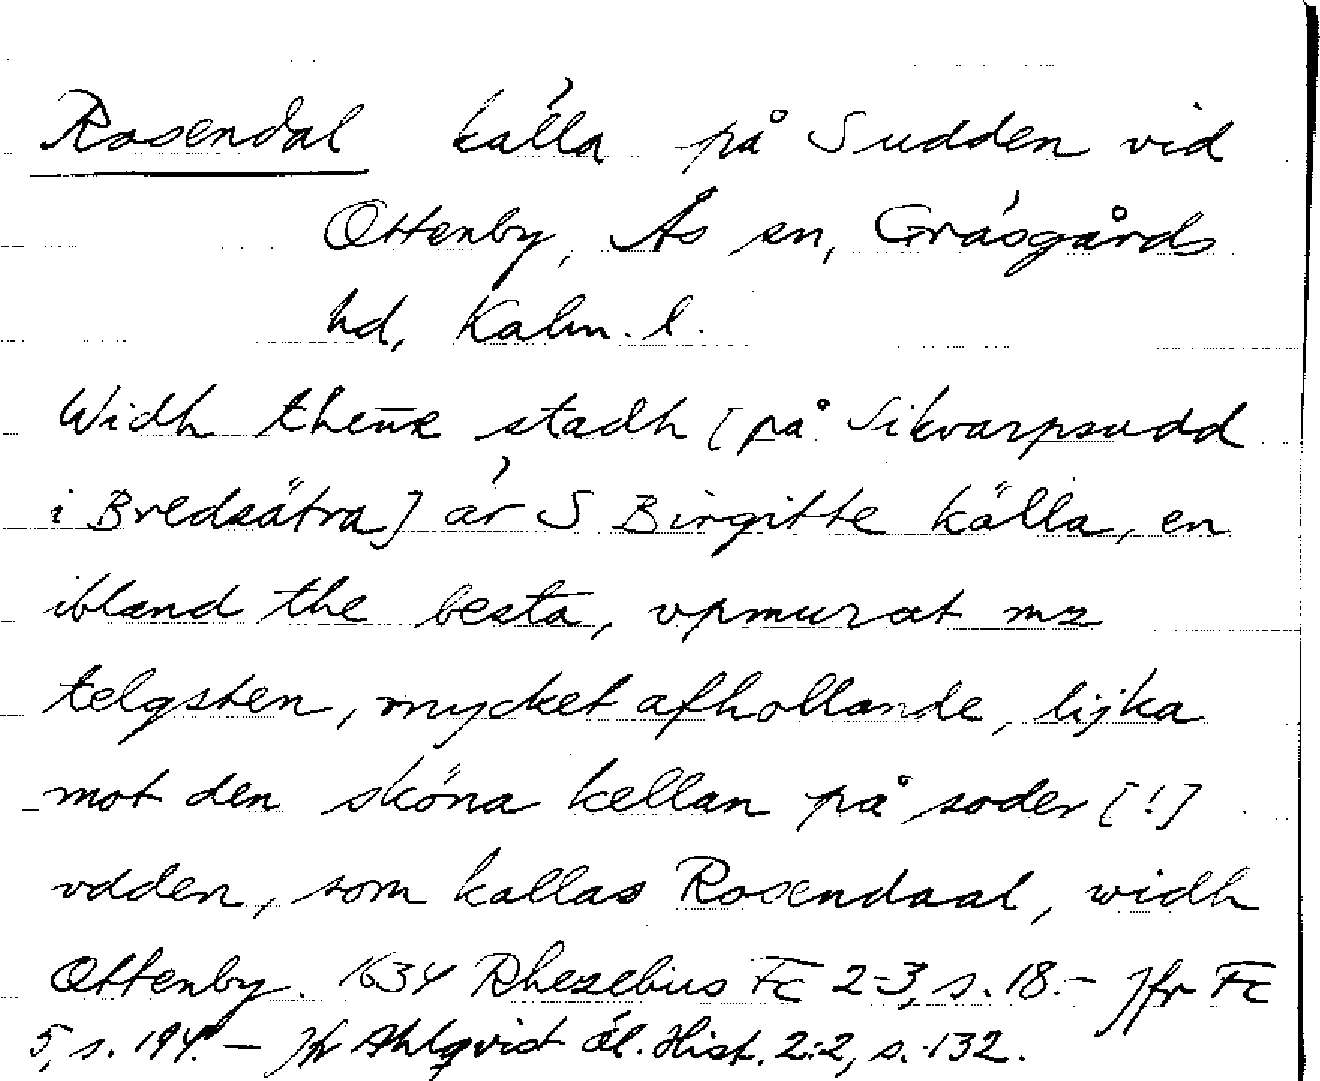 Rosendal källa på Sudden vid
Ottenby, Ås sn, Gräsgårds
hd, Kalm. l.
Widh then̄e stadh [på Sikvarpsudd
i Bredsätra] är S Birgitte källa, en
ibland the besta, vpmurat mz
telgsten, mycket afhollande, lijka
mot den sköna kellan på soder [!]
vdden, som kallas Rosendaal, widh
Ottenby. 1634 Rhezelius Fc 2-3, s. 18.- Jfr Fc
5, s. 194. - Jfr Ahlqvist Öl. Hist. 2:2, s. 132.